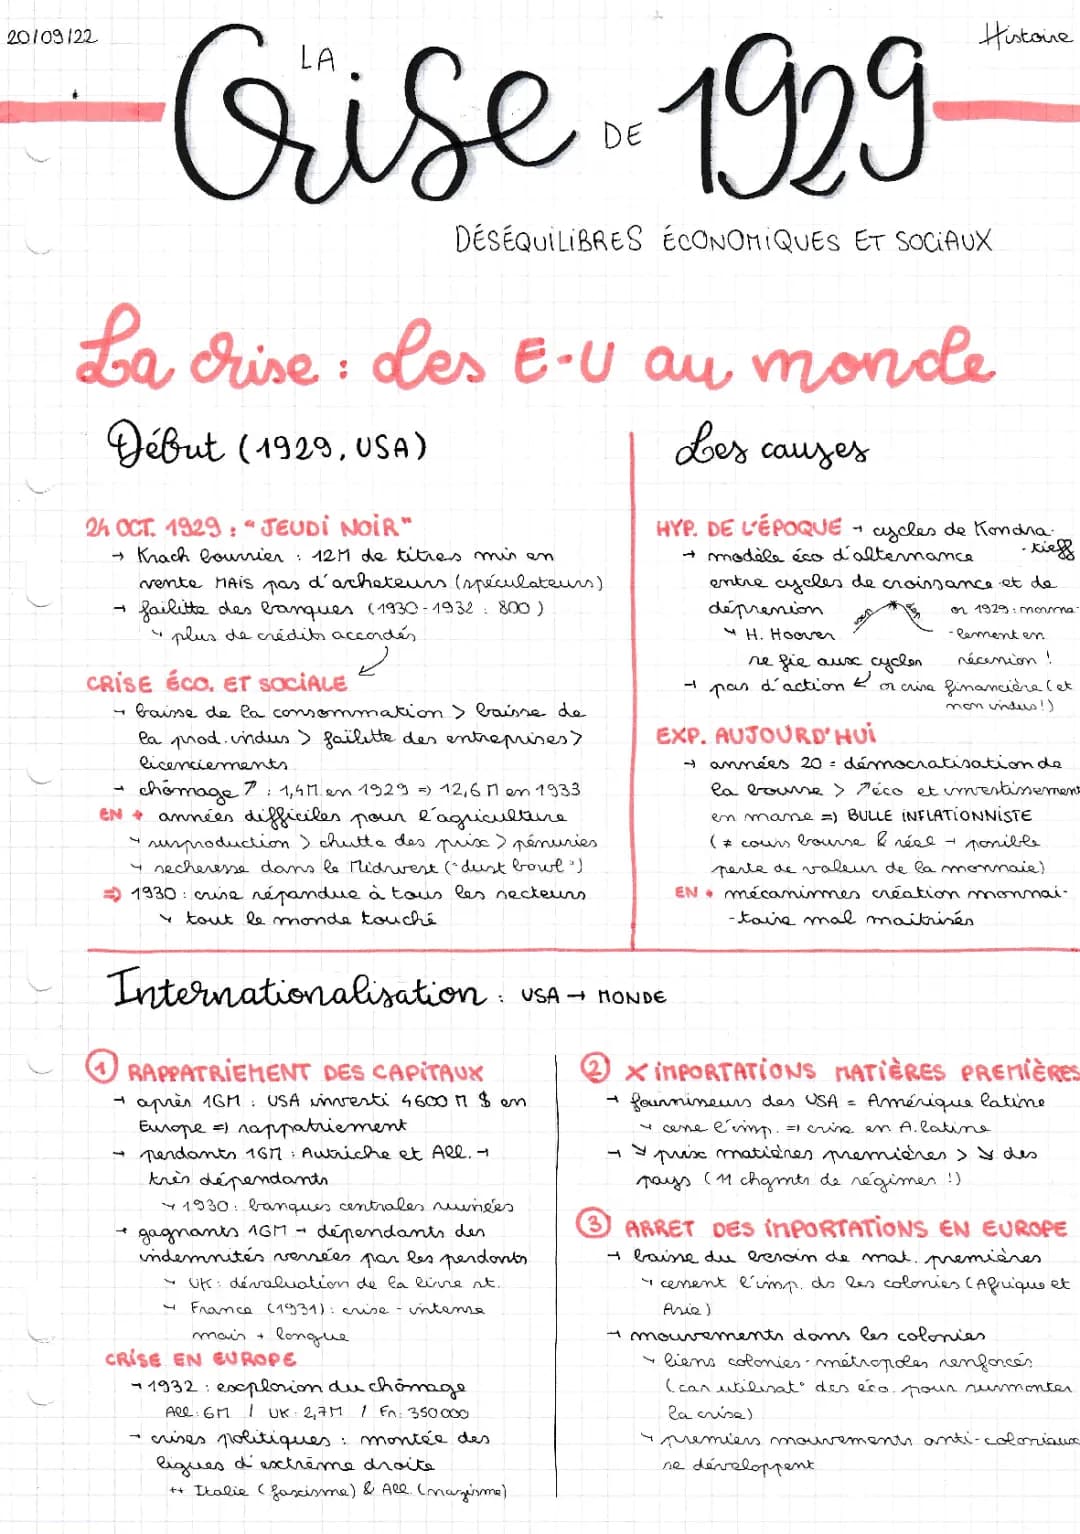 20/09/22
Histoire
LA
Crise DE 1929
DÉSÉQUILIBRES ÉCONOMIQUES ET SOCIAUX
La crise : des E-U au monde
Début (1929, USA)
24 OCT. 1929 : "JEUDI NOIR"
→ Krach boursier : 12M de titres mis en
vente MAIS pas d'acheteurs (spéculateurs)
→ faillite des banques (1930-1932 : 800)
↳ plus de crédits accordés
CRISE ÉCO. ET SOCIALE
→ baisse de la consommation > baisse de
la prod. indus > faillitte des entreprises >
licenciements
→ chômage ↗ : 1,4M en 1929 => 12,6 M en 1933
EN + années difficiles pour l'agriculture
↳ surproduction > chutte des prix > pénuries
↳ secheresse dans le Midwest ("dust bowl")
=> 1930 : crise répandue à tous les secteurs
↳ tout le monde touché
Les causes
HYP. DE L'ÉPOQUE → cycles de Kondra-
-tieff
→ modèle éco d'alternance
entre cycles de croissance et de
dépression
or 1929 : norma-
↳ H. Hoover
-lement en
se fie aux cycles
récession !
→ pas d'action ↙ or crise financière (et
non indus!)
EXP. AUJOURD'HUI
→ années 20 = démocratisation de
la bourse > ↗éco et investissement
en masse => BULLE INFLATIONNISTE
(≠ cours bourse & réel → possible
perte de valeur de la monnaie)
EN + mécanismes création monnai-
-taire mal maitrisés
Internationalisation : USA → MONDE
① RAPPATRIEMENT DES CAPITAUX
→ après 1GM : USA investi 4600 M $ en
Europe => rappatriement
→ perdants 1GM : Autriche et All. →
très dépendants
↳ 1930 : banques centrales ruinées
→ gagnants 1GM → dépendants des
indemnités versées par les perdants
↳ UK : dévaluation de la livre st.
↳ France (1931) : crise - intense
mais + longue
CRISE EN EUROPE
→ 1932 : explosion du chômage
All : 6M / UK : 2,7M / Fr : 350 000
→ crises politiques : montée des
ligues d'extrême droite
++ Italie (fascisme) & All. (nazisme)
② X IMPORTATIONS MATIÈRES PREMIÈRES
→ fournisseurs des USA = Amérique latine
↳ cesse l'imp. => crise en A. latine
→ ↘ prix matières premières > ↘ des
pays (11 chgmts de régimes !)
③ ARRET DES IMPORTATIONS EN EUROPE
→ baisse du besoin de mat. premières
↳ cessent l'imp. ds les colonies (Afrique et
Asie)
→ mouvements dans les colonies
↳ liens colonies - métropoles renforcés
(car utilisat° des éco. pour surmonter
la crise)
↳ premiers mouvements anti-coloniaux
se développent